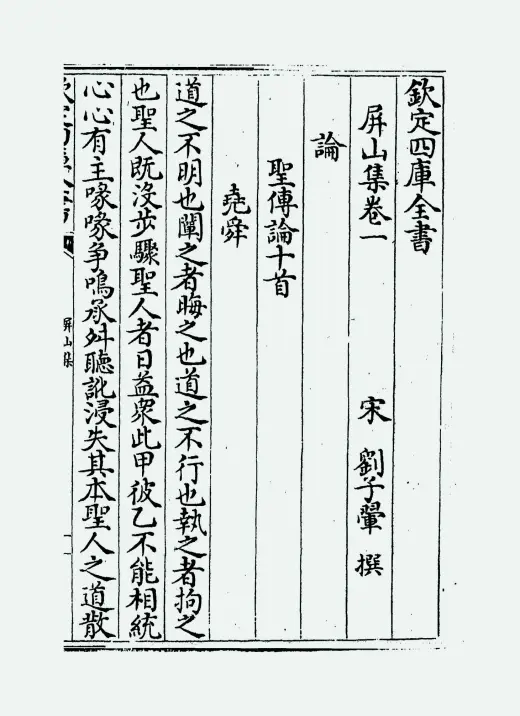 欽定四庫全書
屏山集卷一
宋 劉子翬 撰
論
聖傳論十首
堯舜
道之不明也闡之者晦之也道之不行也執之者拘之
也聖人既沒步驟聖人者日益衆此甲彼乙不能相統
心心有主喙喙争鳴承舛聽訛浸失其本聖人之道散
屏山集
一